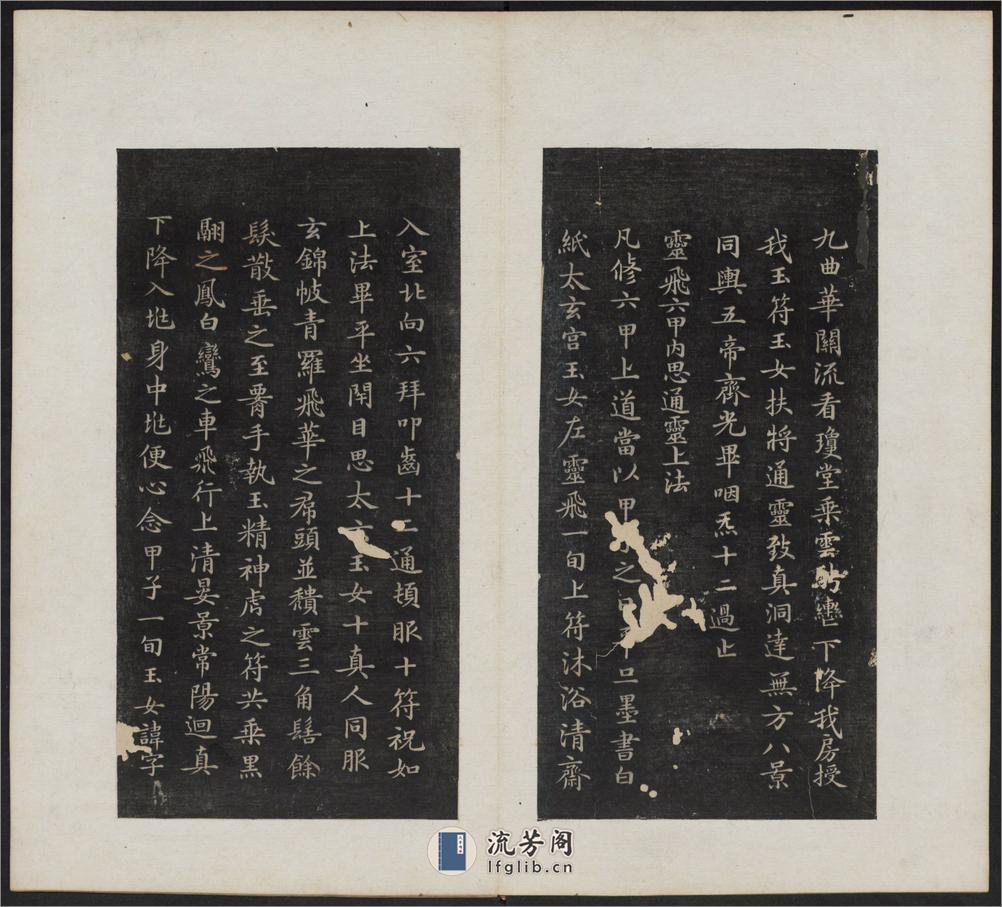 九曲華關流看瓊堂乘雲轡下降我房授
我玉符玉女扶將通靈致真洞達無方八景
同輿五帝齊光畢咽炁十二過止
靈飛六甲內思通靈上法
凡修六甲上道當以甲之旦墨書白
紙太玄宮玉女左靈飛一旬上符沐浴清齋
入室北向六拜叩齒十二通頓服十符祝如
上法畢平坐閉目思太玄玉女十真人同服
玄錦帔青羅飛華之帬頭並穨雲三角髻餘
髮散垂之至𦝫手執玉精神虎之符共乘黑
翮之鳳白鸞之車飛行上清晏景常陽迴真
下降入兆身中兆便心念甲子一旬玉女諱字
流芳阁
lfglib.cn